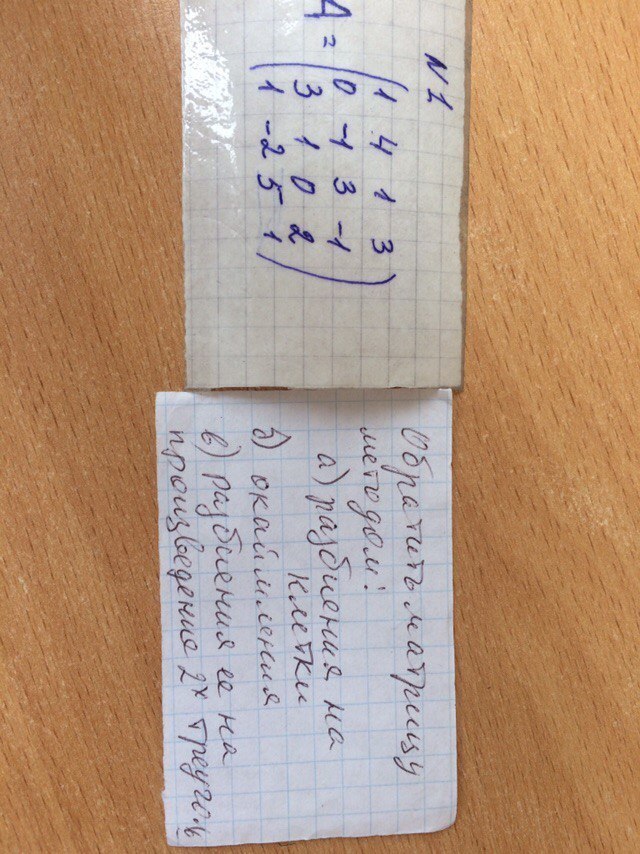 N 1
1 4 1 3
0 -1 3 -1
A =
3 1 0 2
1 -2 5 1
Обратить матрицу
методом:
а) разбиения на
клетки
б) окаймления
в) разбиения ее на
произведение 2х треуголь